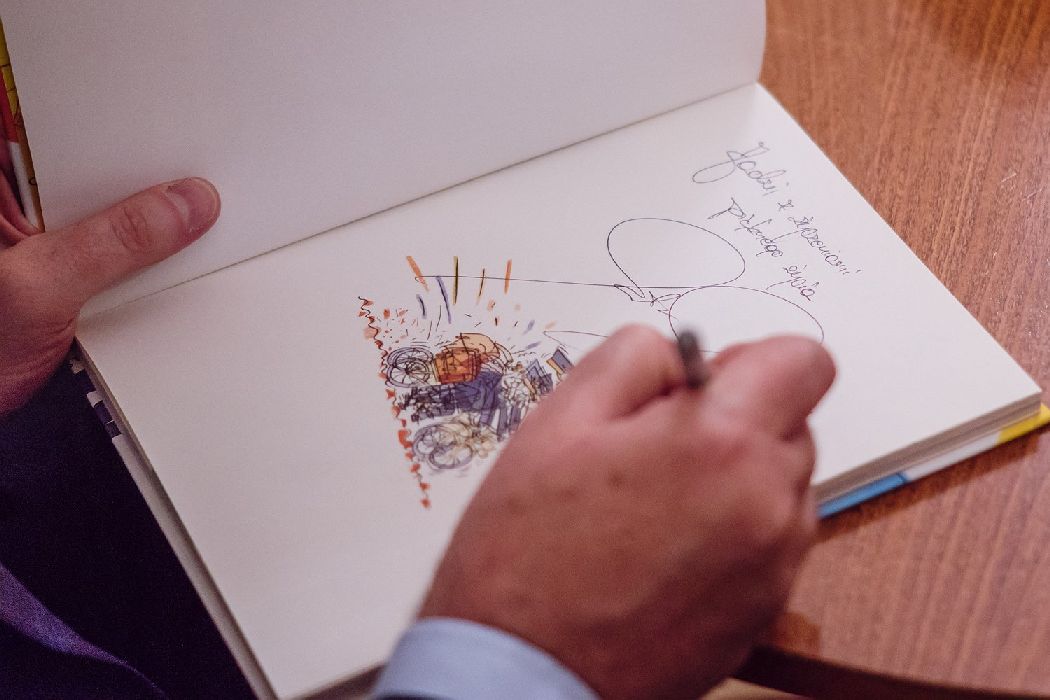 Jadzi z życzeniami
pięknego życia